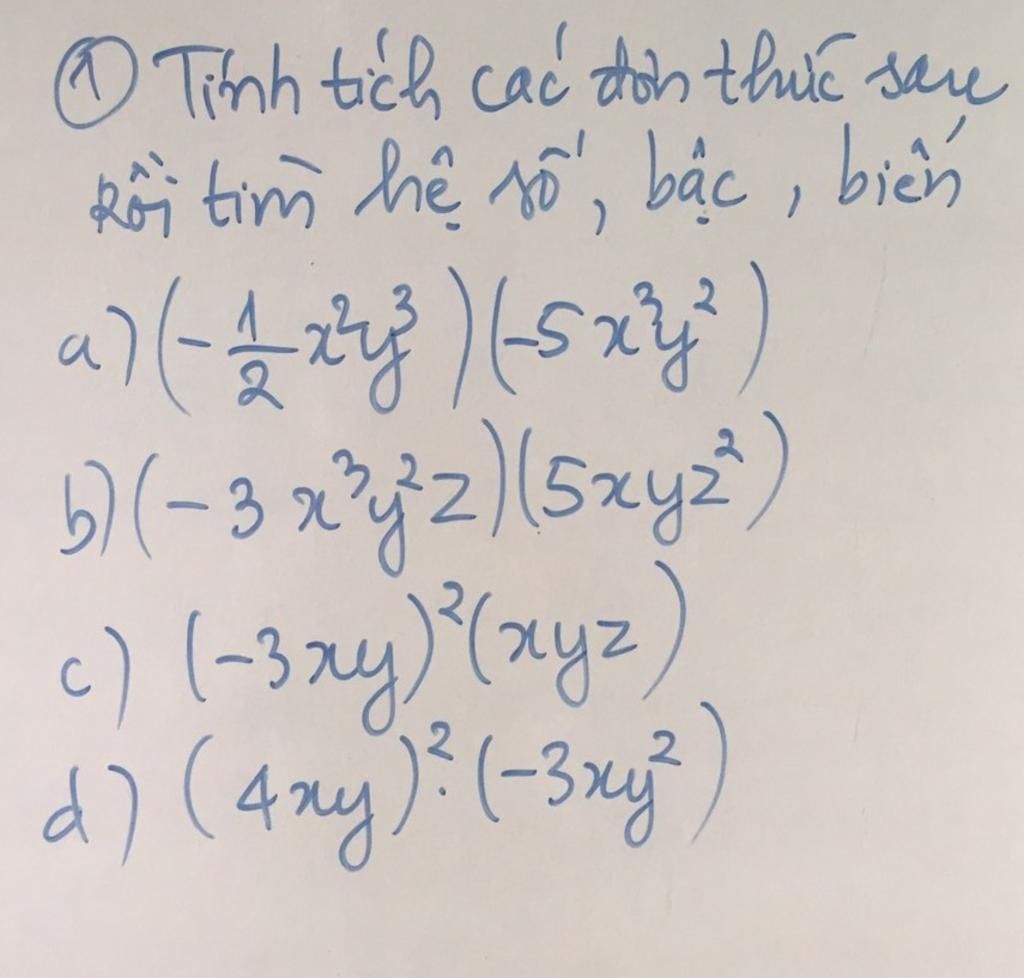 ① Tính tích các đơn thức sau
rồi tìm hệ số, bậc, biến
a) (-1/2 x²y³)(-5x³y²)
b) (-3x³y²z)(5xyz²)
c) (-3xy)²(xyz)
d) (4xy)².(-3xy²)